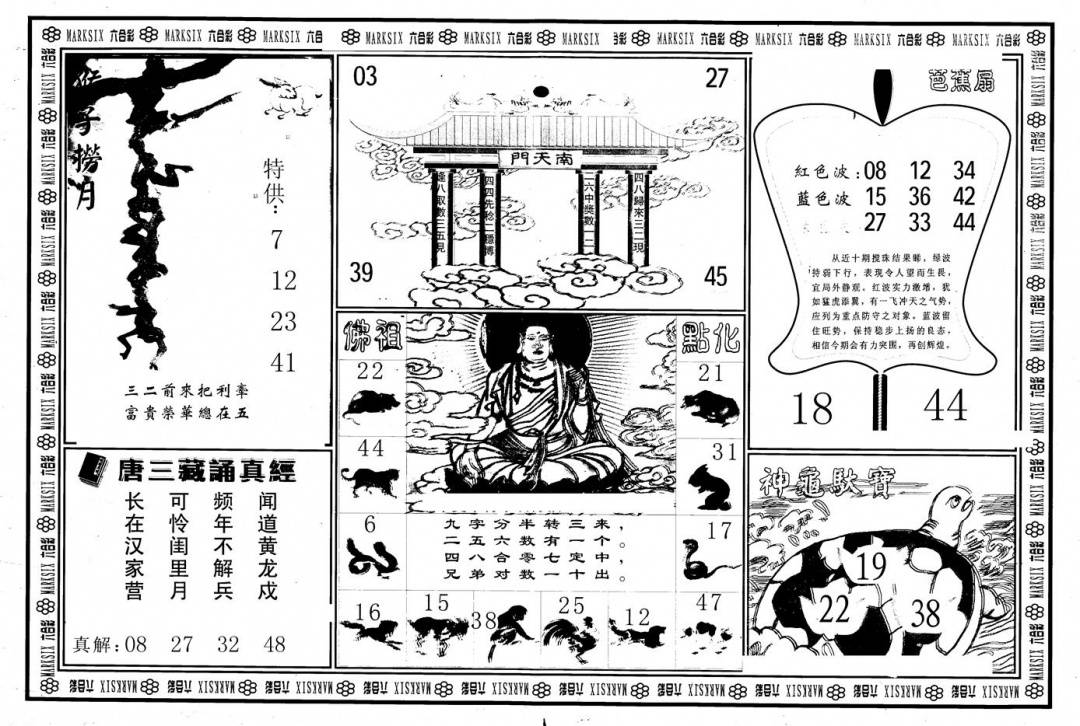 MARKSIX 六合彩 MARKSIX 六合彩 MARKSIX 六合彩 MARKSIX 六合彩 MARKSIX 彩 MARKSIX 六合彩 MARKSIX 六合彩 MARKSIX 六合彩 MARKSIX 六合彩
猴子撈月
特供:
7
12
23
41
三二前來把利牽
富貴榮華總在五
03
27
南天門
逢八取數三五見
四四先稔一穩博
二六中獎數一二
四八歸來三二現
39
45
芭蕉扇
紅色波:08 12 34
藍色波 15 36 42
27 33 44
从近十期搅珠结果睇,绿波
持弱下行,表现令人望而生畏,
宜局外静观。红波实力激增,犹
如猛虎添翼,有一飞冲天之气势,
应列为重点防守之对象。蓝波留
住旺势,保持稳步上扬的良态,
相信今期会有力突围,再创辉煌。
18
44
佛祖
點化
22
21
44
31
6
17
九字分半转三来,
二五六数有一个。
四八合零七定中,
兄弟对数一十出。
16
15
38
25
12
47
唐三藏誦真經
闻道黄龙戍
频年不解兵
可怜闺里月
长在汉家营
真解:08 27 32 48
神龜馱寶
19
22
38